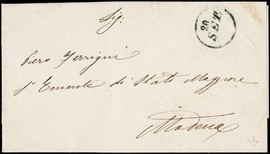 Sig.
20
SET.
Piero Ferrigni
s. Tenente di Stato Maggiore
Modena